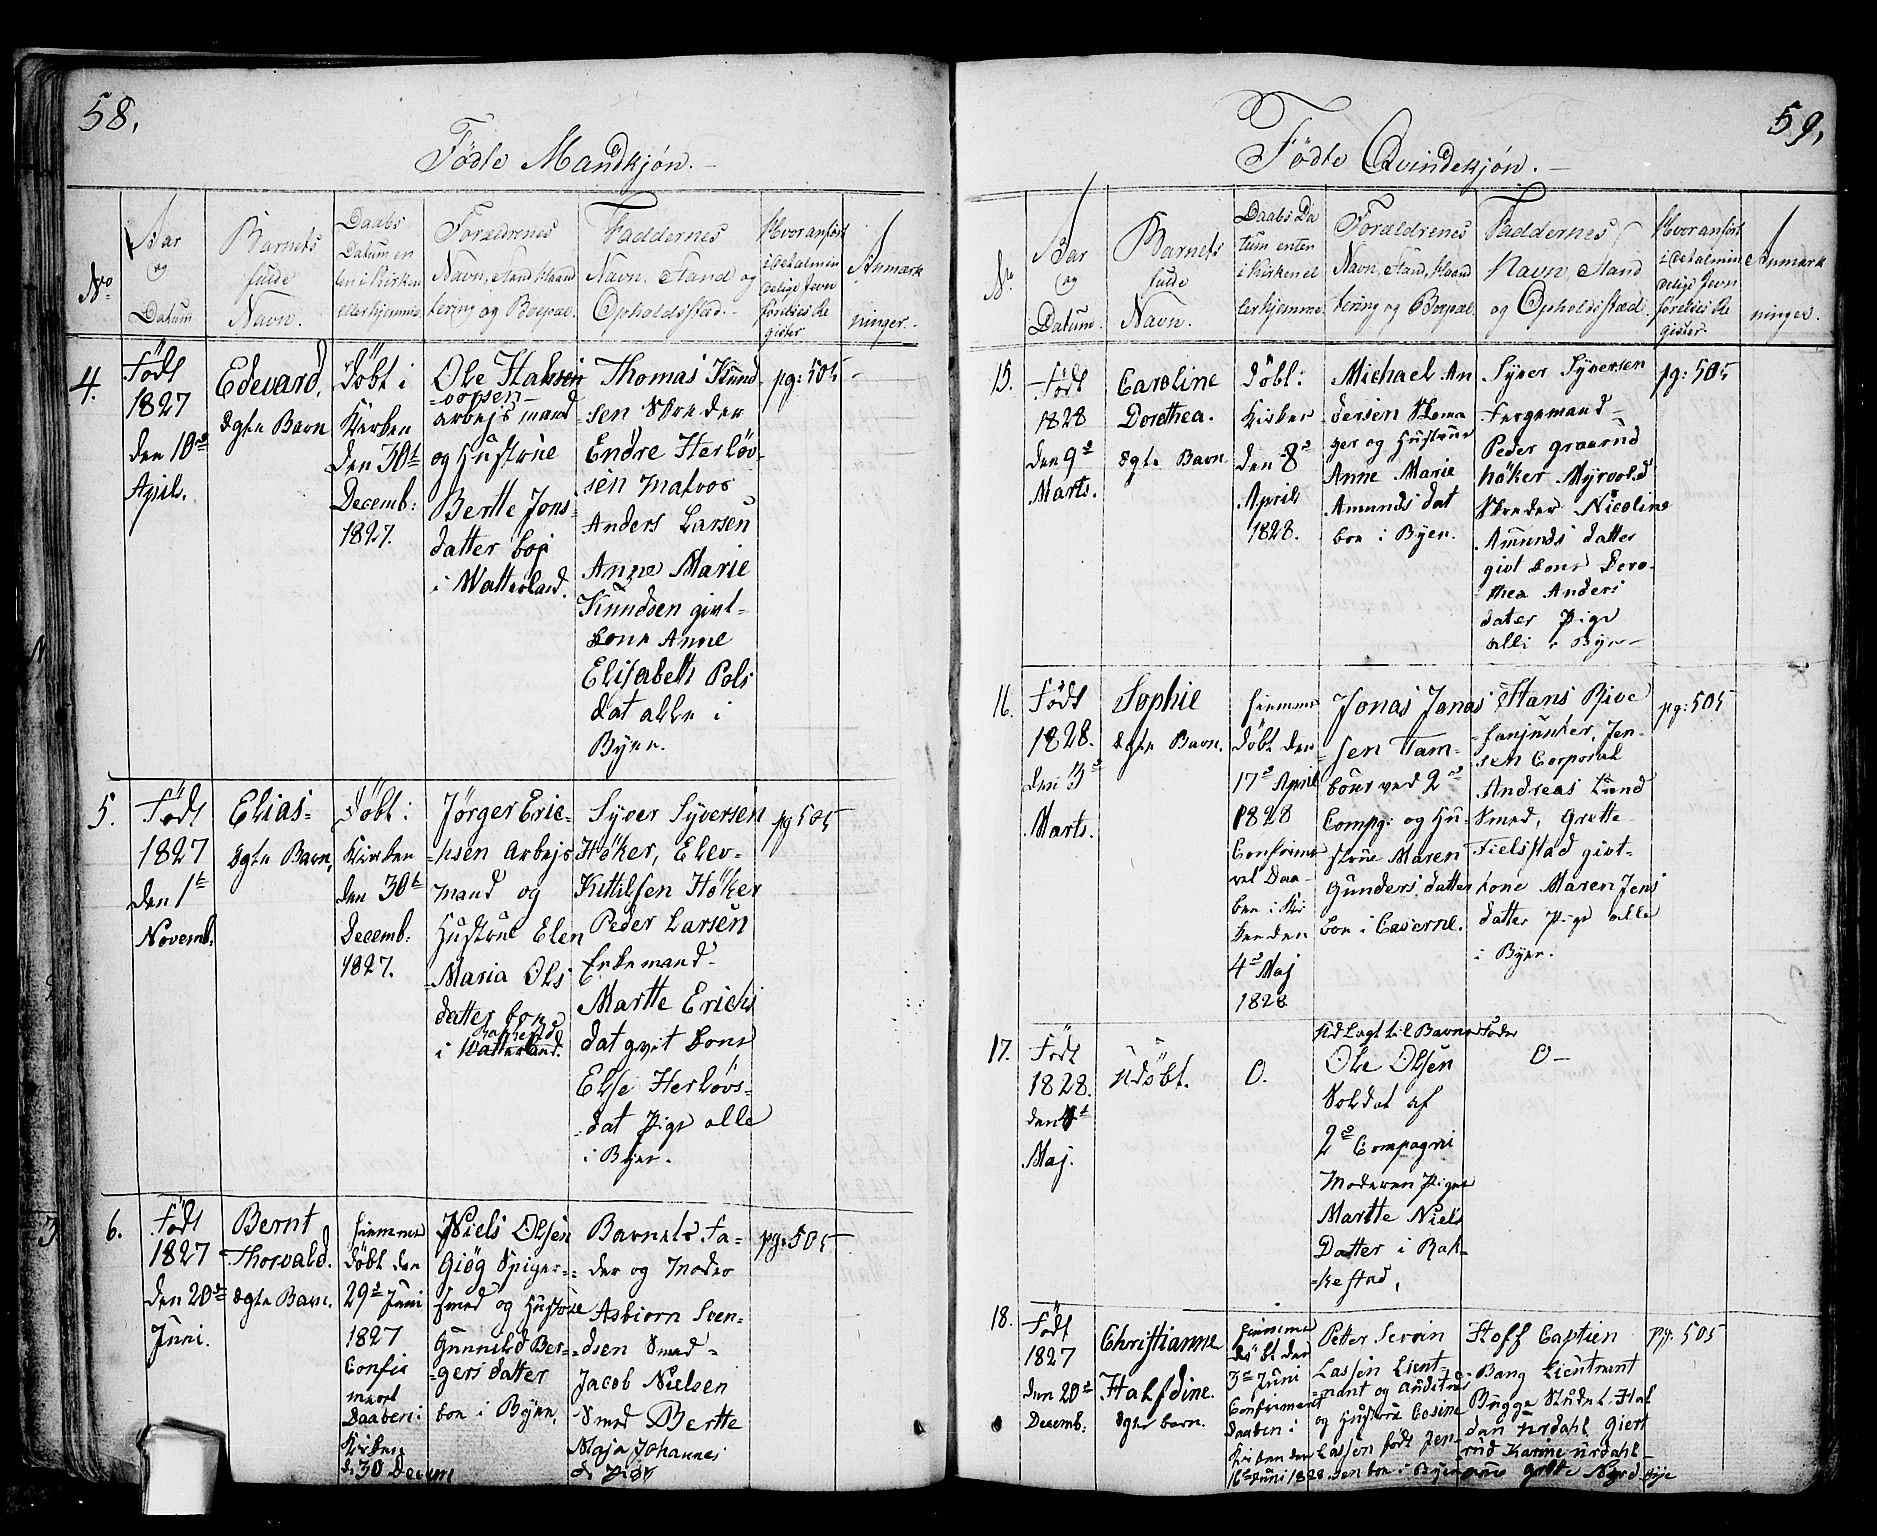 58.
Födte Mandkjön.
No
Aar
og
Datum
Barnets
fulde
Navn.
Daabs
Datum en
ten i Kirken
eller hjemme
Forældrenes
Navn, Stand, Haand
tering og Boepæl.
Faddernes
Navn, Stand og
Opholdssted.
Hvor anfört
i det almin
delige Jevn
förelses Re
gister.
Anmærk
ninger.
4.
Födt
1827
den 10de
April.
Edevard.
Ægte Barn
Döbt i
Kirken
den 30t
Decemb:
1827.
Ole Hansen
arbejs mand
og Hustrue
Berthe Jons-
datter boe
i Watterland.
Thomas Knud
sen Skreder
Endre Herlöv-
sen Matros
Anders Larsen
Anne Marie
Knudsen givt-
kone Anne
Elisabeth Pols
dat alle i
Byen.
pg: 505
5.
Födt
1827
den 1te
Novemb.
Elias
Ægte Barn,
Döbt i
Kirken
den 30t
Decemb:
1827.
Jörger Eric-
-hsen Arbejs
mand og
Hustrue Elen
Maria Ols
datter boe
i Watterland.
Syver Syversen
Höker, Elev-
Kittilsen Höker
Peder Larsen
Marthe Erichs
dat givt kone
Else Herlövs-
dat Pige alle
i Byen.
pg: 505
6.
Födt
1827
den 20de
Juni.
Bernt
Thorvald.
Ægte Barn.
hiemme
döbt den
29de Juni
1827
Confir
meret
Daaben i
Kirken
d: 30 Decem
Niels Olsen
Giög Spiger-
smed og Hustrue
Gunneld Ber-
gers datter
boe i Byen.
Barnets Fa-
der og Moder
Asbiorn Sven-
dsen Smed
Jacob Nielsen
Smed Berthe
Maja Johannes
d: Pige
pg: 505
59.
Födte Qvindekjön.
No
Aar
og
Datum.
Barnets
fulde
Navn.
Daabs Da
tum enten
i Kirken el
ler hjemme
Forældrenes
Navn, Stand, Haand
tering og Boepæl.
Faddernes
Navn, Stand
og Opholdssted
Hvor anfört
i det almin
delige Jevn
förelses Re
gister.
Anmærk
ninger.
15.
Födt
1828
den 9de
Marts.
Caroline
Dorothea.
Ægte Barn
Döbt i
Kirken
den 8de
April
1828.
Michael An
dersen Skoma
ger og Hustrue
Anne Marie
Amunds dat
boe i Byen.
Syver Syversen
Fergemand
Peder Graarud
höker Myrvold
Skreder Nicoline
Amunds datter
givt kone Doro-
thea Anders
dater Pige
alle i Byen
pg: 505
16.
Födt
1828.
den 3de
Marts.
Sophie
Ægte Barn.
hiemme
döbt den
17de April
1828
Confirme
ret Daa-
ben i Kir
ken den
4de Maj
1828
Jonas Jonas
sen Tam-
bour ved 2det
Compg: og Hu-
strue Maren
Gunders datter
boe i Caserne.
Hans Bive
fanjunker, Jen-
sen Corporal
Andreas Lund
Smed, Grethe
Fielstad givt-
kone Maren Jens
datter Pige alle
i Byen.
pg: 505
17.
Födt
1828.
den 4de
Maj.
Udöbt.
0.
Udlagt til Barnefader
Ole Olsen
Soldat af
2de Compagni
Moderen Pigen
Marthe Niels
Datter i Bak-
kestad,
0-
18.
Födt
1827
den 20de
Decemb:
Christianne
Halfdine.
Ægte barn.
hiemme
döbt den
3de Juni
Confirmeret
daaben i
Kirken den
16te Juni 1828
Petter Severin
Lassen Lieut-
nant og Auditeur
og Hustrue Cosine
Lassen födt Jen-
sen boe i Byen
Hoff Captien
Bang Lieutnant
Bugge Studnt Hal
dan Urdahl Giert
rud Karine Urdahl
Grethe
pg: 505